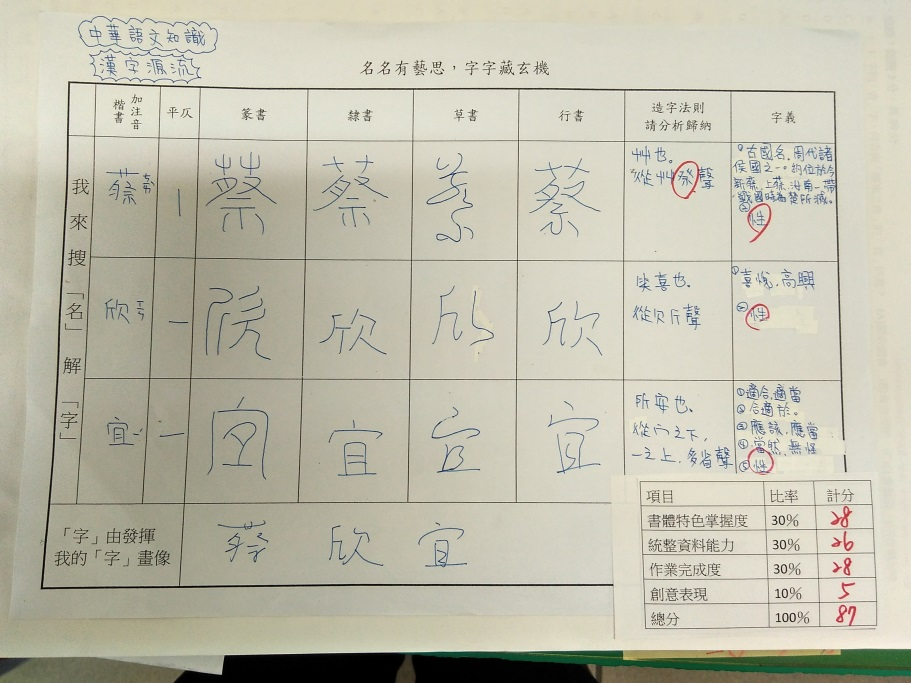 中華語文知識
漢字源流
名名有藝思，字字藏玄機
楷書 加注音
平仄
篆書
隸書
草書
行書
造字法則
請分析歸納
字義
我來搜「名」解「字」
蔡 ㄘㄞˋ
｜
蔡
蔡
蔡
蔡
艸也。
從艸祭聲
①古國名。周代諸
侯國之一。約位於今
新蔡、上蔡
戰國時為楚所滅。
②姓
欣 ㄒㄧㄣ
一
欣
欣
欣
欣
笑喜也。
從欠斤聲
①喜悅，高興
②姓
宜 ㄧˊ
一
宜
宜
宜
宜
所安也。
從宀之下，
一之上，多省聲
①適合，適當
②合適於。
③應該，應當
④當然，無怪
⑤姓
「字」由發揮
我的「字」畫像
蔡 欣 宜
項目 比率 計分
書體特色掌握度 30% 28
統整資料能力 30% 26
作業完成度 30% 28
創意表現 10% 5
總分 100% 87